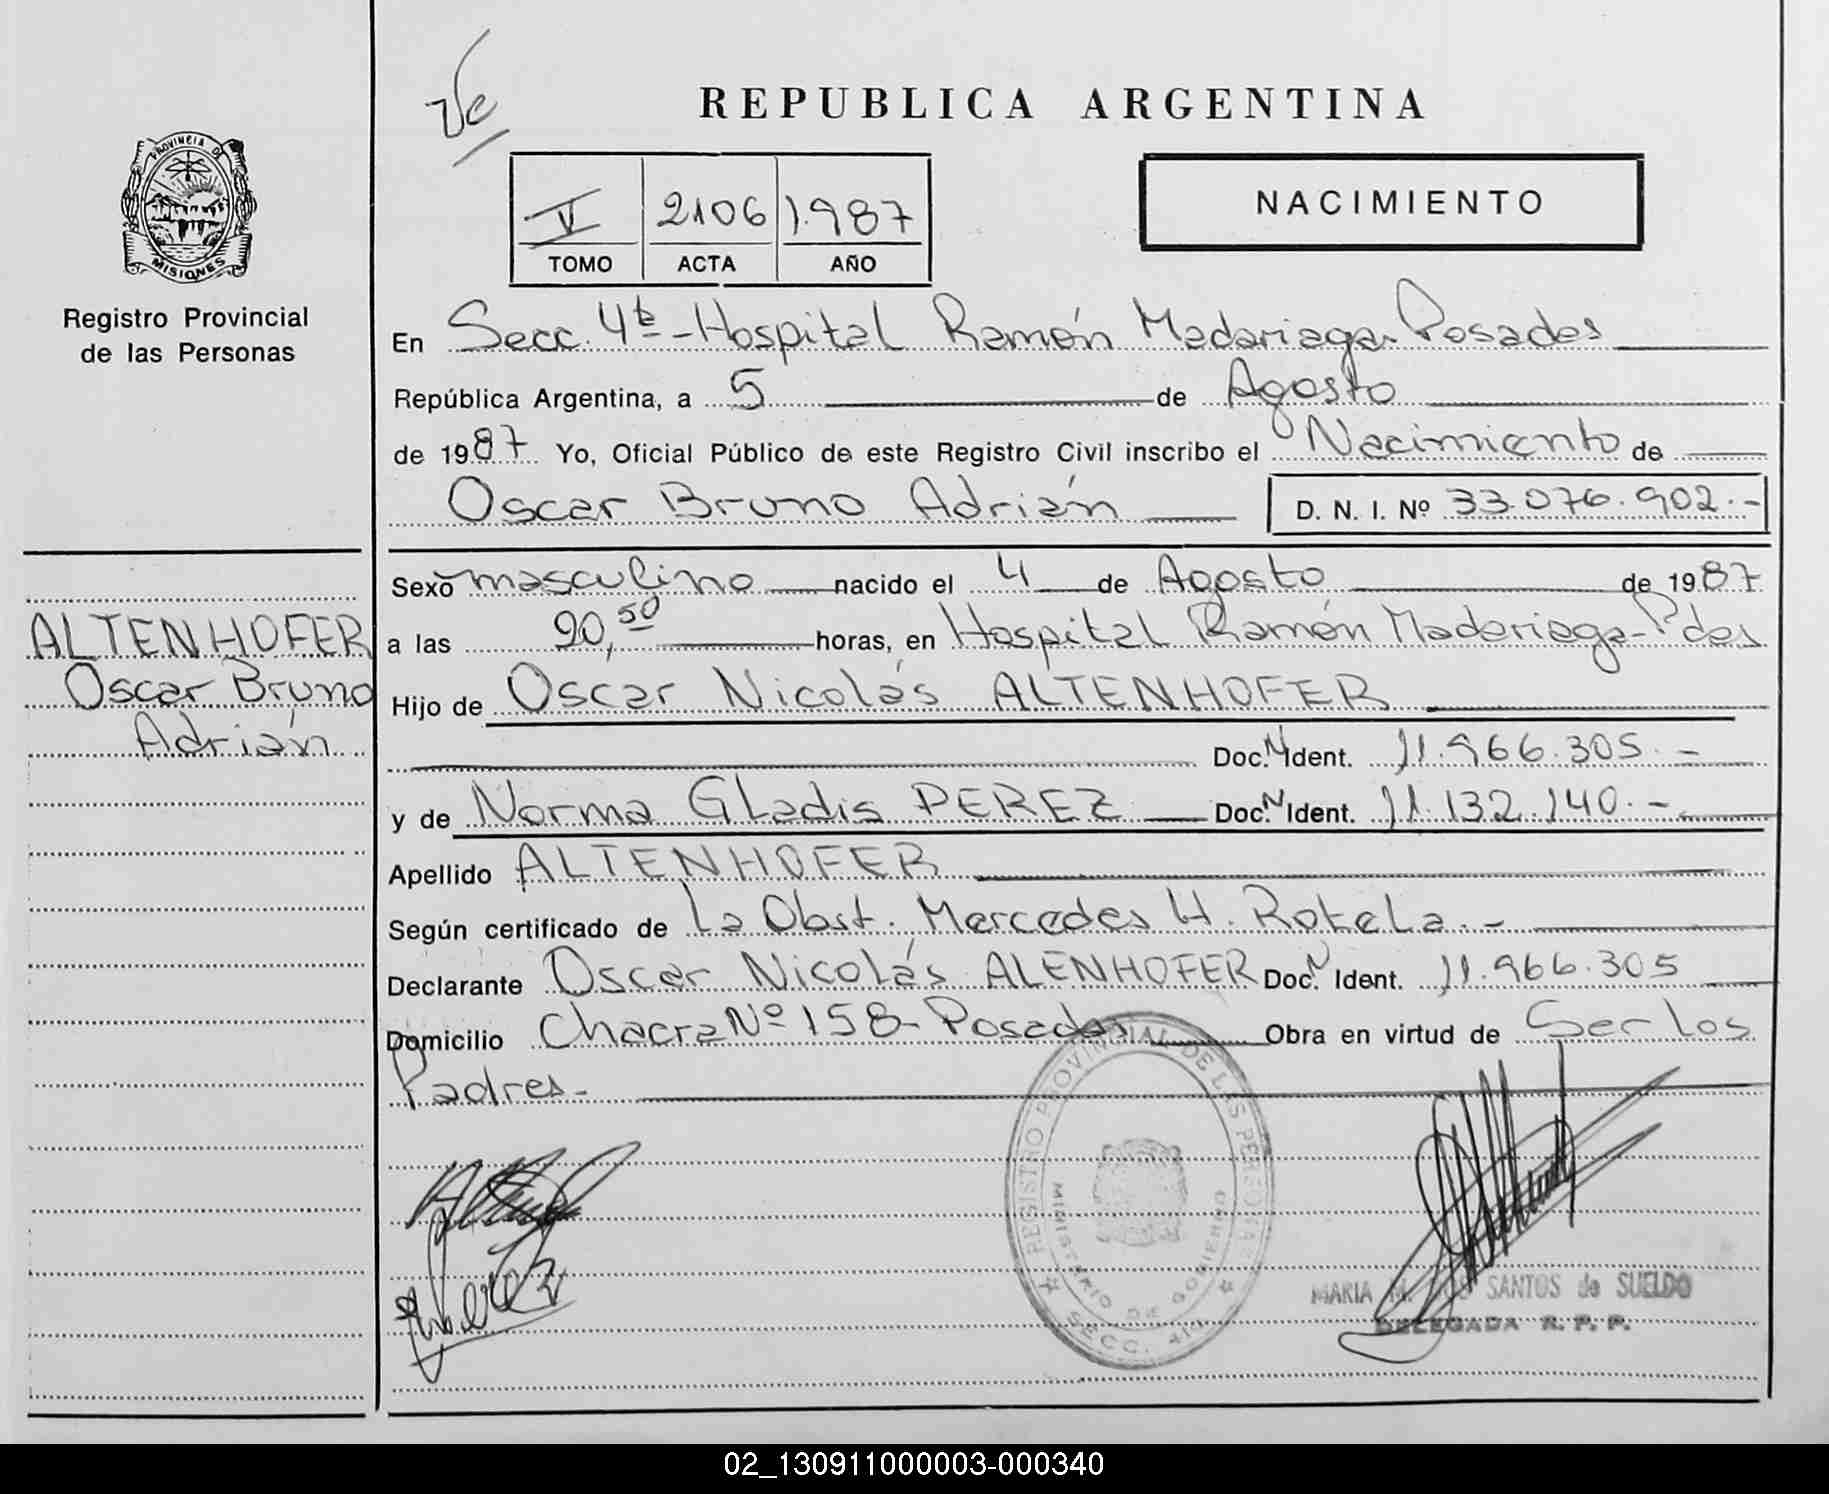 REPUBLICA ARGENTINA
PROVINCIA DE
MISIONES
Registro Provincial
de las Personas
V 2106 1.987
TOMO ACTA AÑO
NACIMIENTO
En Secc. 4ta - Hospital Ramón Madariaga - Posadas
República Argentina, a 5 de Agosto
de 1987 Yo, Oficial Público de este Registro Civil inscribo el Nacimiento de
Oscar Bruno Adrián D. N. I. Nº 33.076.902.-
ALTENHOFER
Oscar Bruno
Adrián
Sexo masculino nacido el 4 de Agosto de 1987
a las 20,50 horas, en Hospital Ramón Madariaga - Pdas
Hijo de Oscar Nicolás ALTENHOFER
Doc. N Ident. 11.966.305.-
y de Norma Gladis PEREZ Doc. N Ident. 11.132.140.-
Apellido ALTENHOFER
Según certificado de La Obst. Mercedes H. Rotela.-
Declarante Oscar Nicolás ALENHOFER Doc. N Ident. 11.966.305
Domicilio Chacra Nº 158 - Posadas Obra en virtud de Ser los
Padres.-
REGISTRO PROVINCIAL DE LAS PERSONAS
MINISTERIO DE GOBIERNO
SECC. 4ta
MARIA M. DOS SANTOS de SUELDO
DELEGADA R. P. P.
02_130911000003-000340